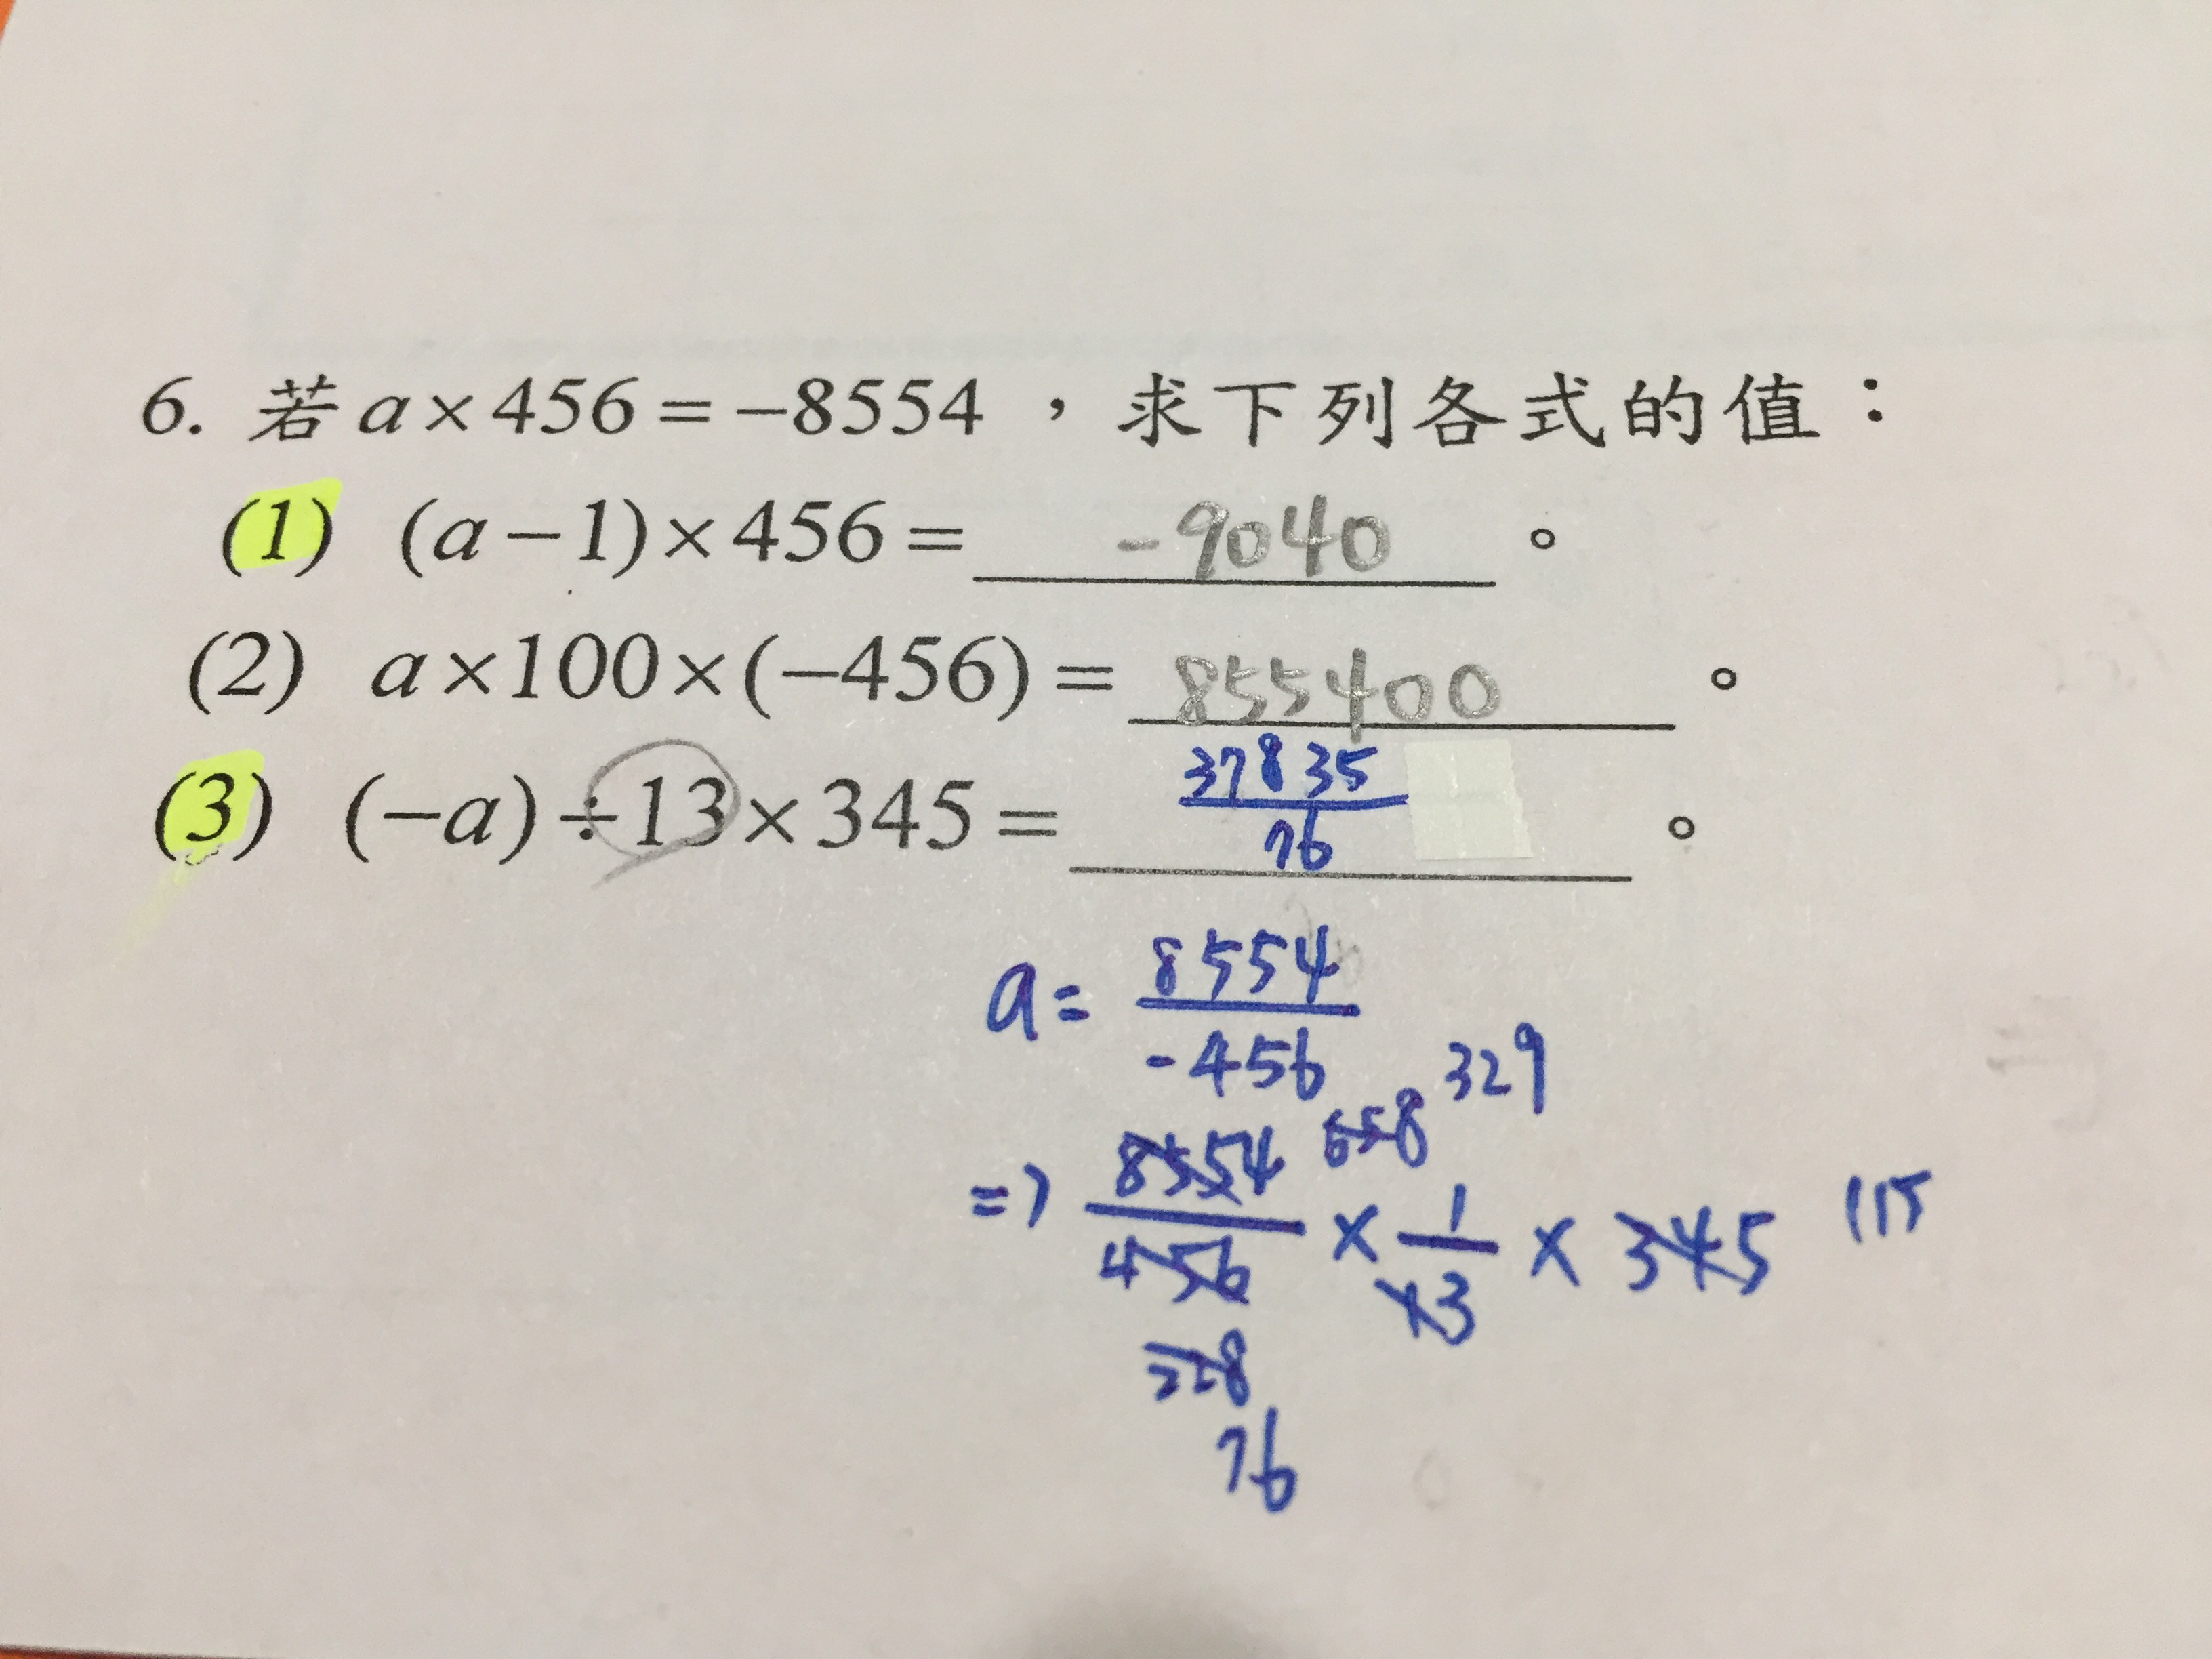 6. 若 a×456=-8554 ，求下列各式的值：
(1) (a-1)×456= -9040 。
(2) a×100×(-456)= 855400 。
(3) (-a)÷13×345= 37835/76 。
a= 8554/-456
329
658
=> 8554/456 × 1/13 × 345 115
228
76